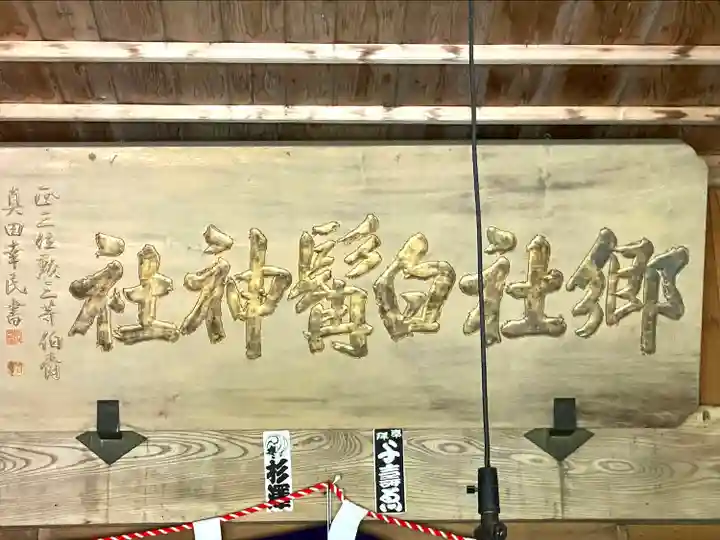 郷社白髯神社
正三位勲三等伯爵
真田幸民書
杉澤
八千壽